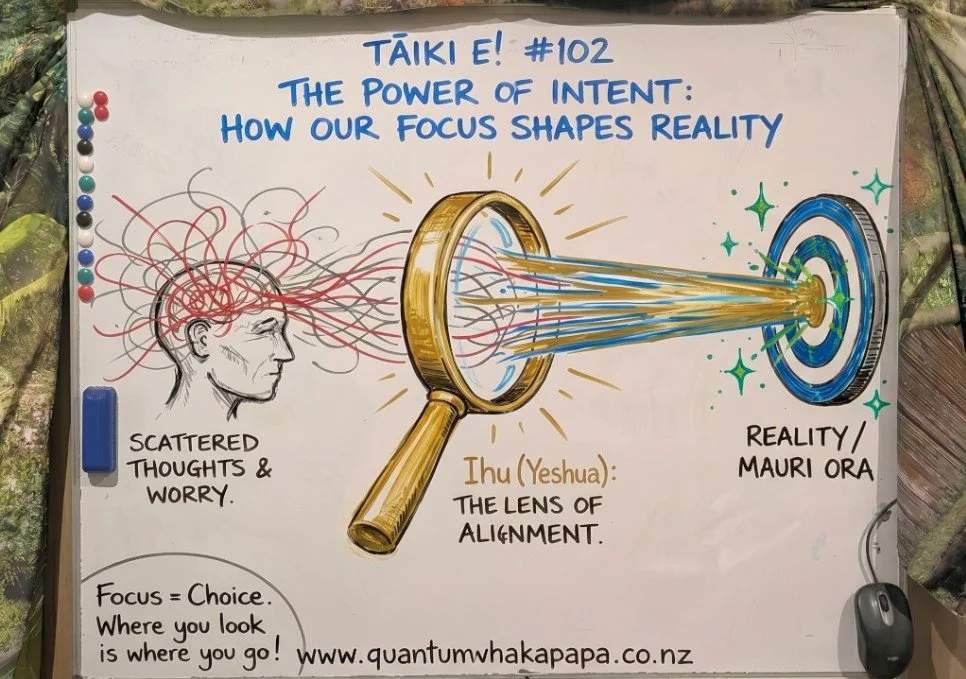 TĀIKI E! #102
THE POWER OF INTENT:
HOW OUR FOCUS SHAPES REALITY
SCATTERED
THOUGHTS &
WORRY.
Ihu (Yeshua):
THE LENS OF
ALIGNMENT.
REALITY/
MAURI ORA
Focus = Choice.
Where you look
is where you go!
www.quantumwhakapapa.co.nz